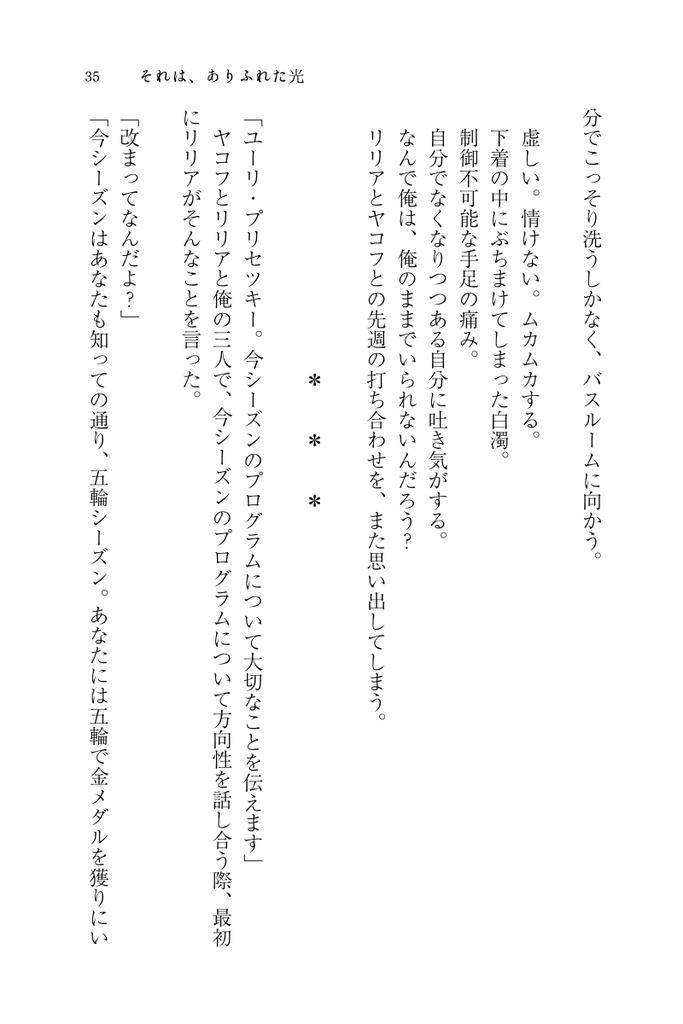 35　それは、ありふれた光
分でこっそり洗うしかなく、バスルームに向かう。
虚しい。情けない。ムカムカする。
下着の中にぶちまけてしまった白濁。
制御不可能な手足の痛み。
自分でなくなりつつある自分に吐き気がする。
なんで俺は、俺のままでいられないんだろう？
リリアとヤコフとの先週の打ち合わせを、また思い出してしまう。
＊　＊　＊
「ユーリ・プリセツキー。今シーズンのプログラムについて大切なことを伝えます」
ヤコフとリリアと俺の三人で、今シーズンのプログラムについて方向性を話し合う際、最初
にリリアがそんなことを言った。
「改まってなんだよ？」
「今シーズンはあなたも知っての通り、五輪シーズン。あなたには五輪で金メダルを獲りにい